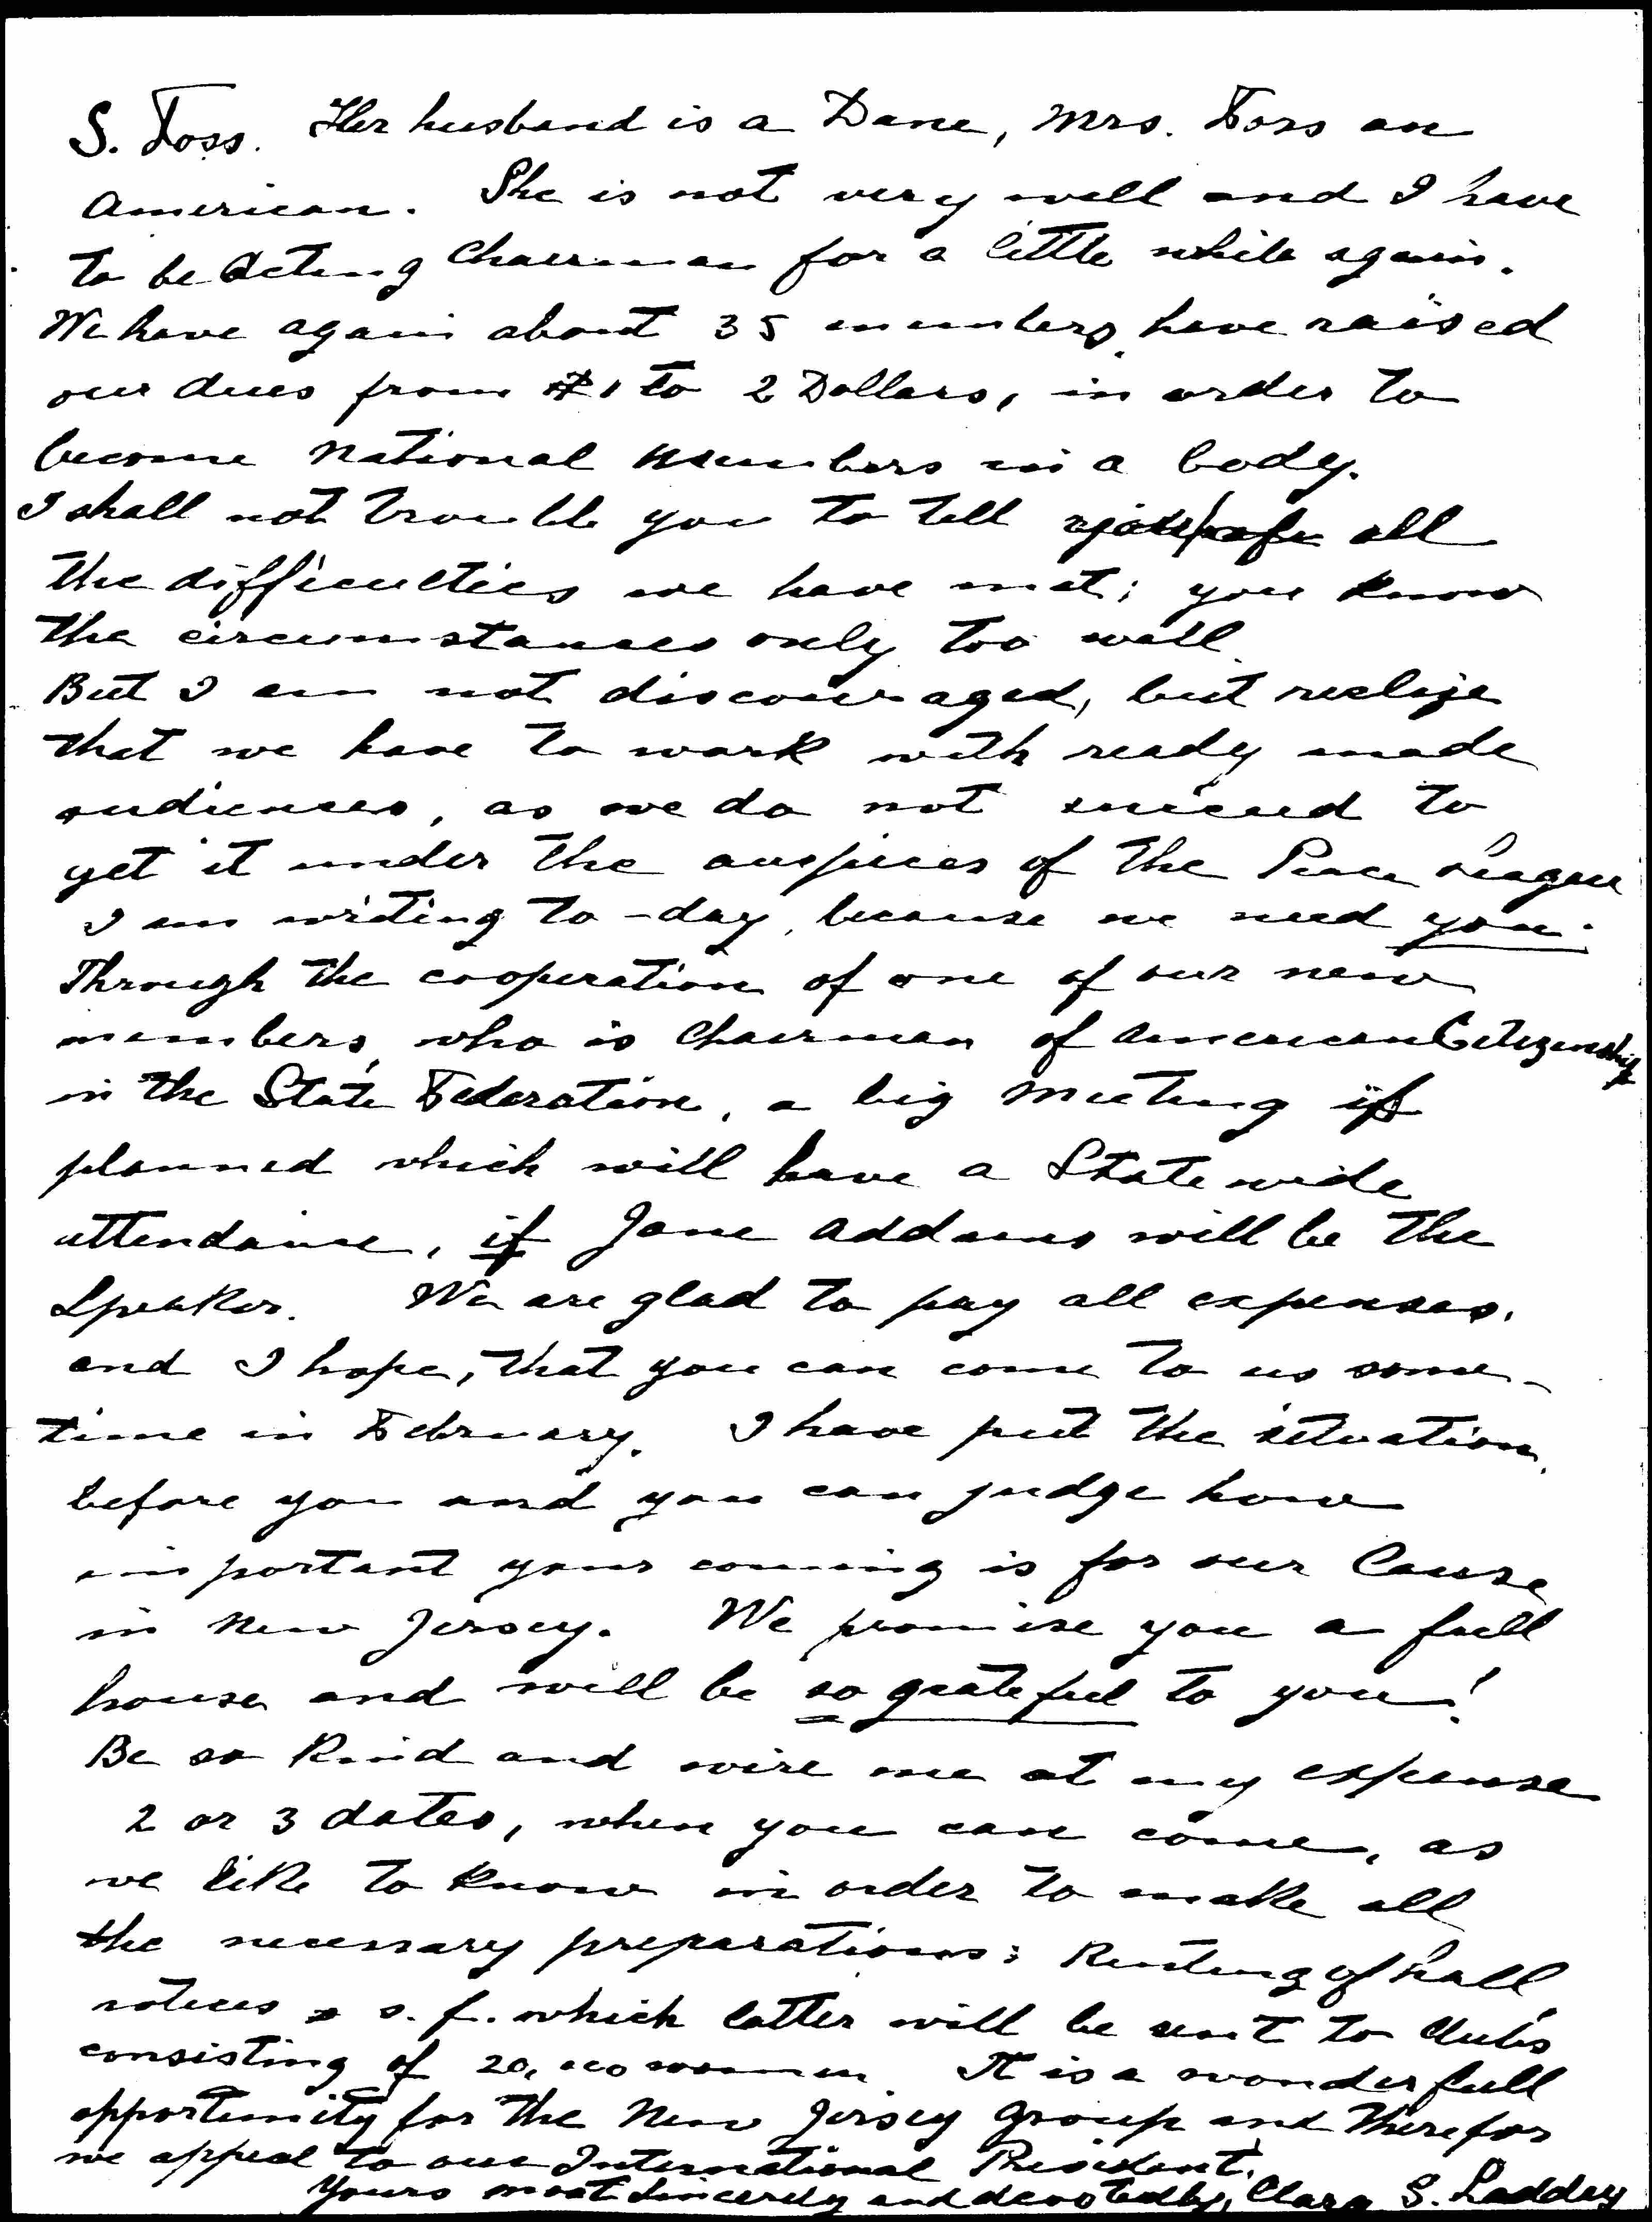 S. Foss. Her husband is a Dane, Mrs. Foss an
American. She is not very well and I have
to be Acting Chairman for a little while again.
We have again about 35 members, have raised
our dues from $1 to 2 Dollars, in order to
become National Members in a body.
I shall not trouble you to tell all
the difficulties we have met; you know
the circumstances only too well.
But I am not discouraged, but realize
that we have to work with ready made
audiences, as we do not succeed to
get it under the auspices of the Peace League
I am writing to-day, because we need you.
Through the cooperation of one of our new
members, who is Chairman of American Citizenship
in the State Federation, a big meeting is
planned which will have a State wide
attendance, if Jane Addams will be the
Speaker. We are glad to pay all expenses.
and I hope, that you can come to us some-
time in February. I have put the situation
before you and you can judge how
important your coming is for our Cause
in New Jersey. We promise you a full
house and will be so grateful to you!
Be so kind and wire me at my expense
2 or 3 dates, when you can come, as
we like to know in order to make all
the necessary preparations: Renting of hall
notices a s. f. which latter will be sent to Clubs
consisting of 20,000 women. It is a wonderfull
opportunity for the New Jersey Group and therefor
we appeal to our International President.
Yours most sincerely and devotedly, Clara S. Laddey